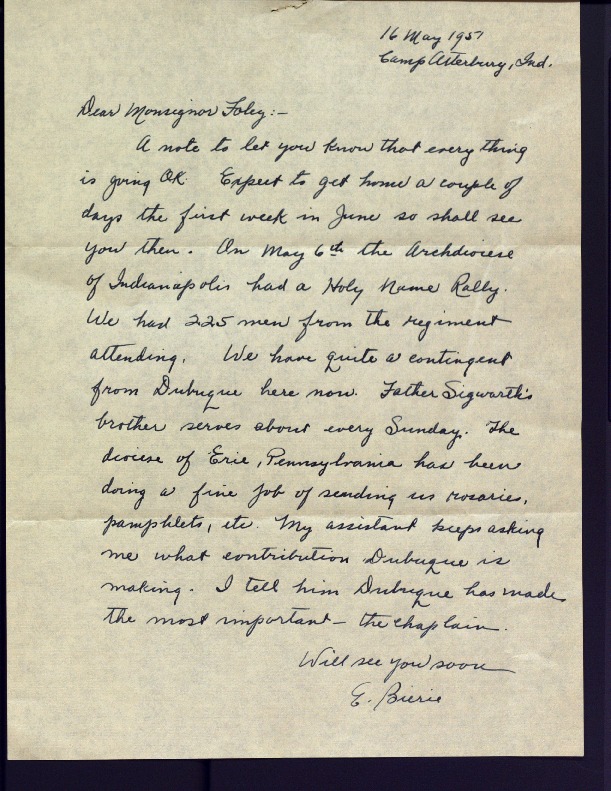 16 May 1951
Camp Atterbury, Ind.
Dear Monsignor Foley:-
A note to let you know that every thing
is going OK. Expect to get home a couple of
days the first week in June so shall see
you then. On May 6th the Archdiocese
of Indianapolis had a Holy Name Rally.
We had 225 men from the regiment
attending. We have quite a contingent
from Dubuque here now. Father Sigwarth's
brother serves about every Sunday. The
diocese of Erie, Pennsylvania has been
doing a fine job of sending us rosaries,
pamphlets, etc. My assistant keeps asking
me what contribution Dubuque is
making. I tell him Dubuque has made
the most important - the chaplain.
Will see you soon
E. Bierie